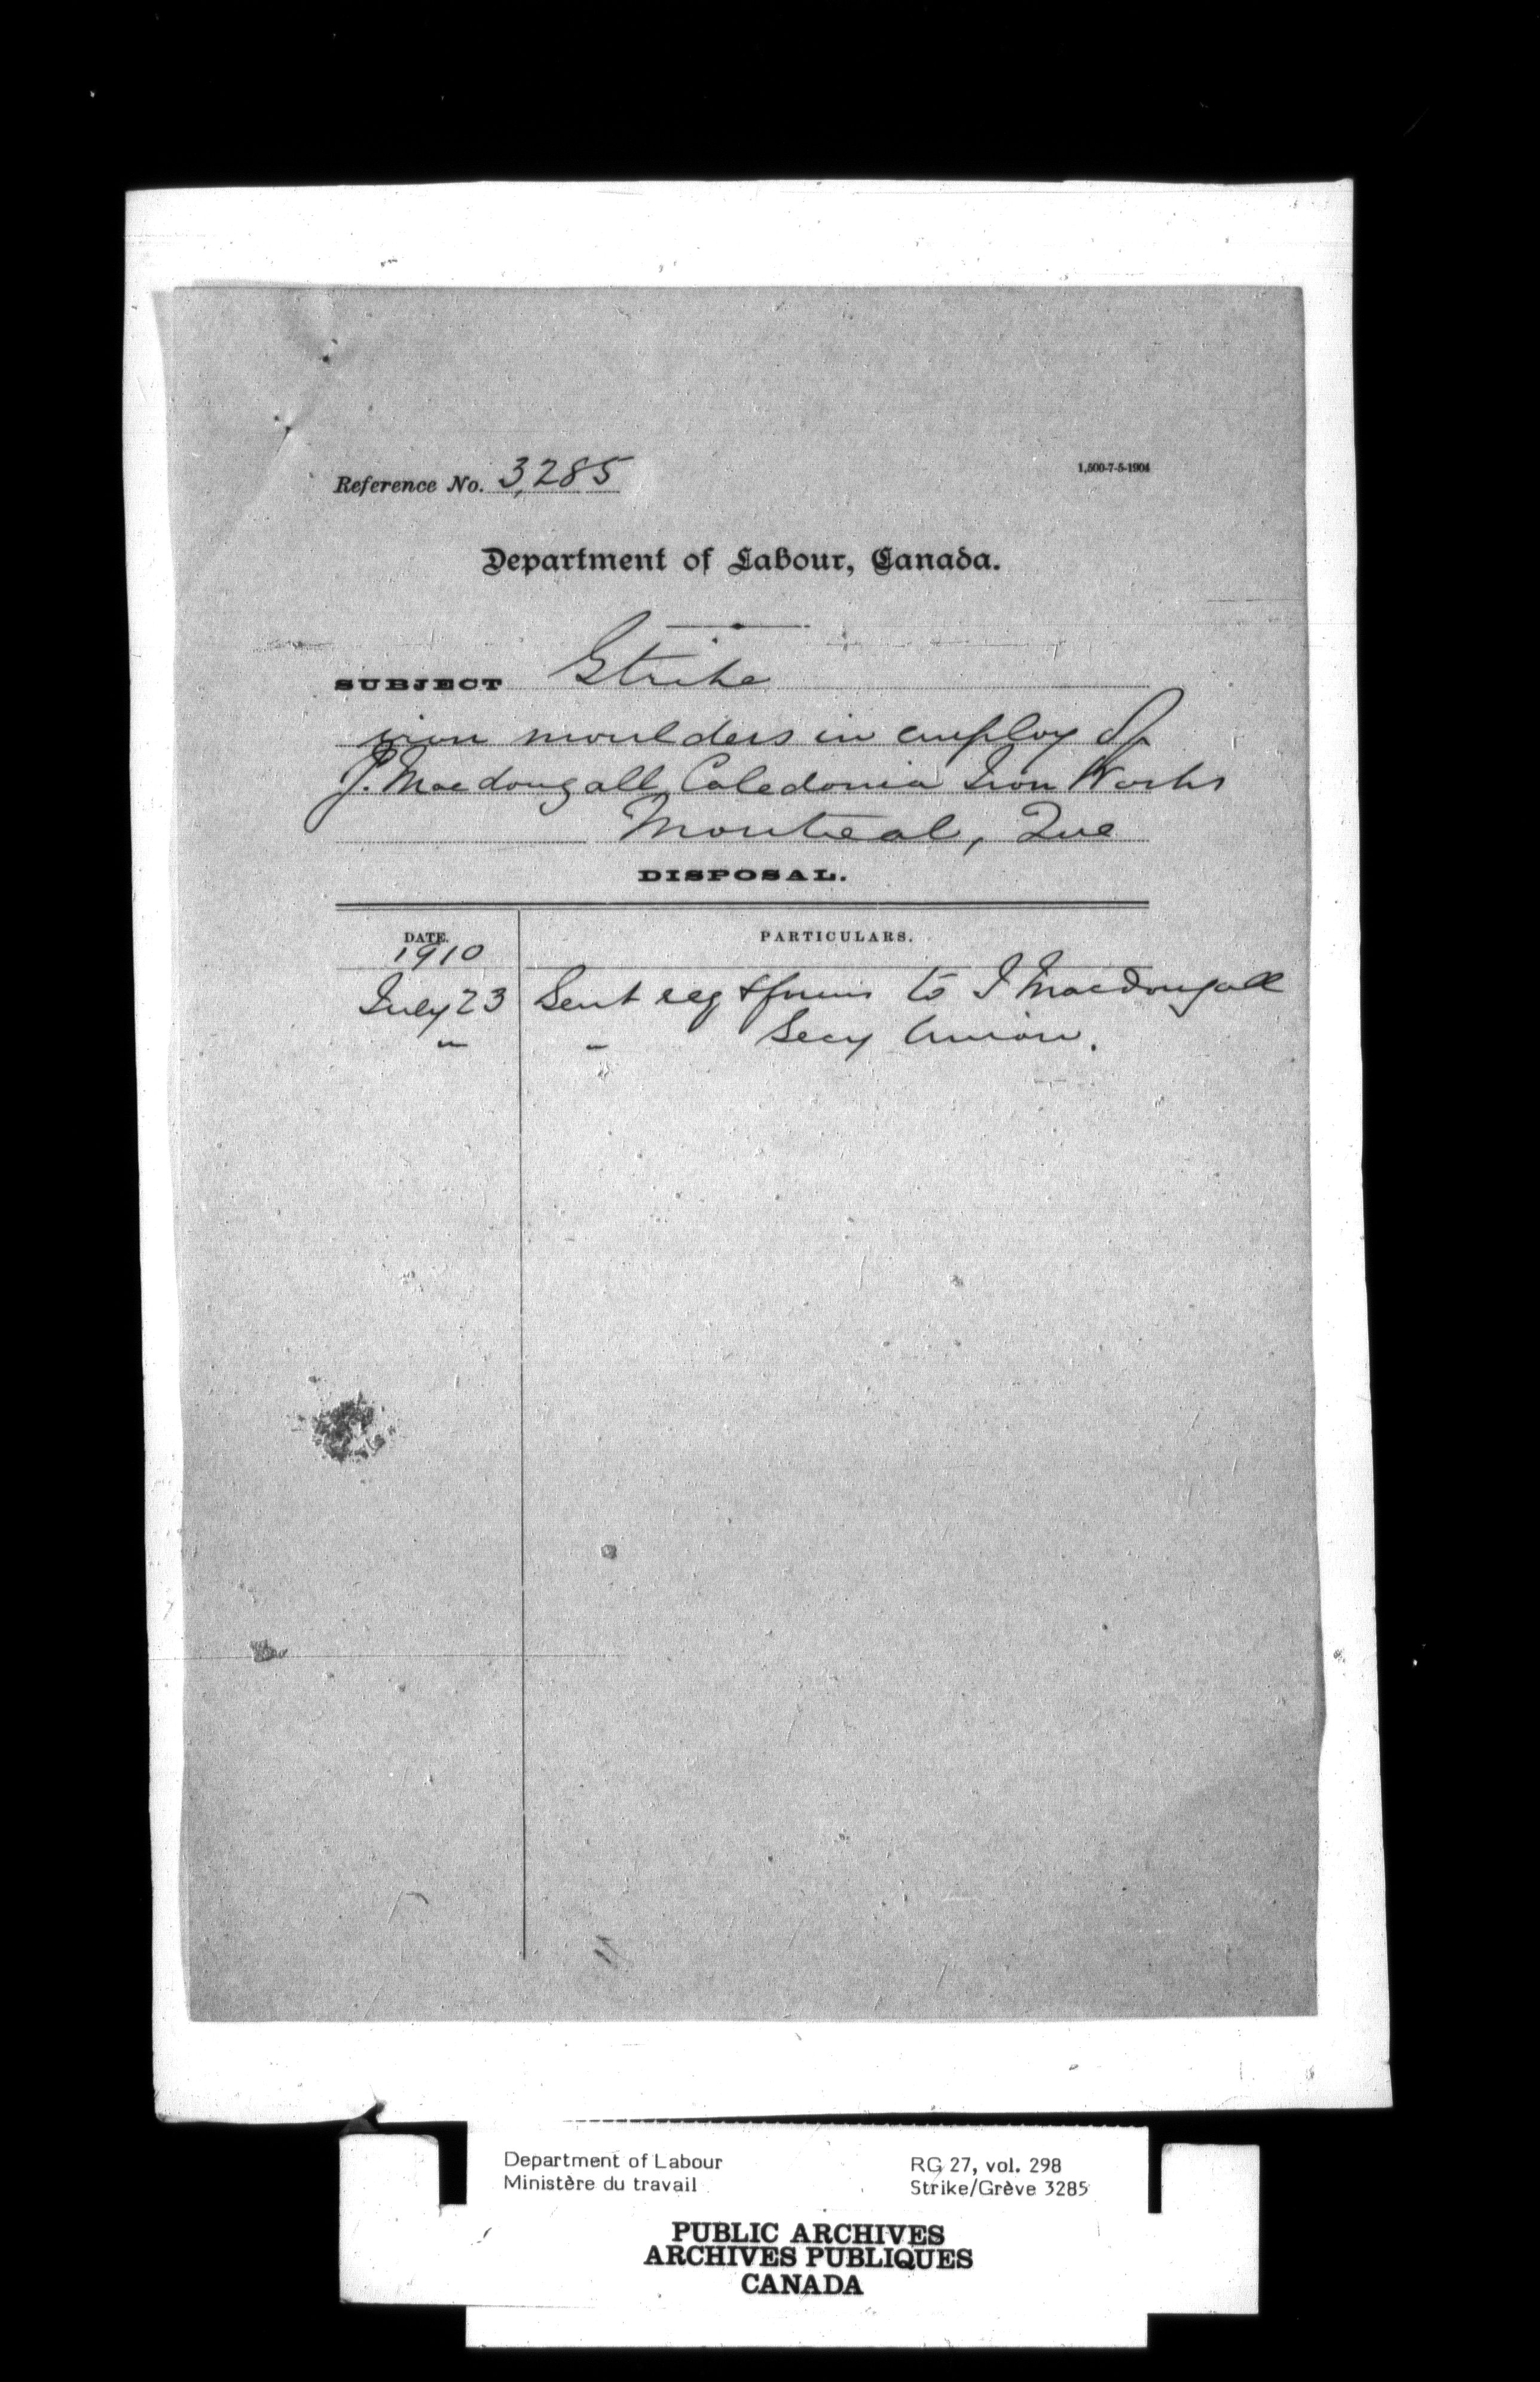 Reference No. 3,285
1,500-7-5-1904
Department of Labour, Canada.
SUBJECT Strike
iron moulders in employ of
J. Macdougall, Caledonia Iron Works
Montreal, Que
DISPOSAL.
DATE. PARTICULARS.
1910
July 23 Sent reg & forms to J Macdougall
" " Secy Union.
Department of Labour
Ministère du travail
RG 27, vol. 298
Strike/Grève 3285
PUBLIC ARCHIVES
ARCHIVES PUBLIQUES
CANADA